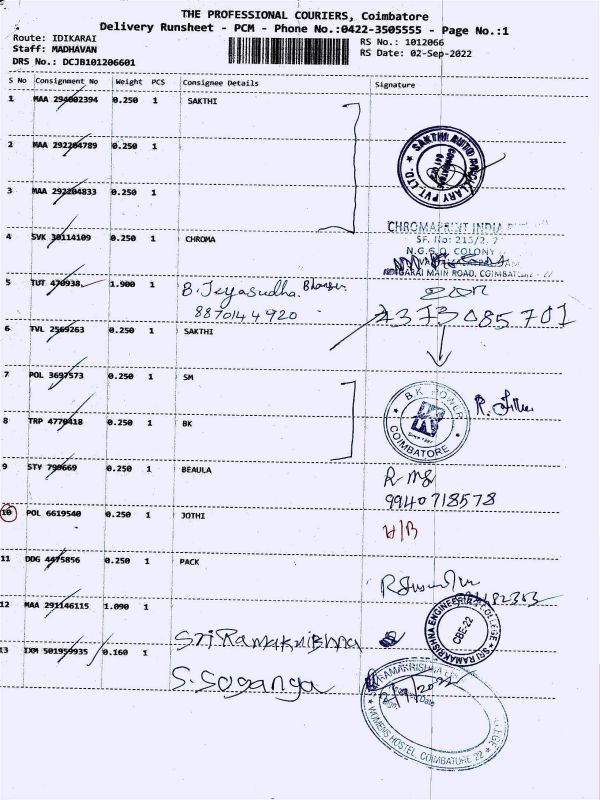 THE PROFESSIONAL COURIERS, Coimbatore
Delivery Runsheet - PCM - Phone No.:0422-3505555 - Page No.:1
Route: IDIKARAI
Staff: MADHAVAN
DRS No.: DCJB101206601
RS No.: 1012066
RS Date: 02-Sep-2022
S No Consignment No Weight PCS Consignee Details Signature
1 MAA 294002394 0.250 1 SAKTHI
2 MAA 292204789 0.250 1
3 MAA 292204833 0.250 1
SAKTHI AUTO ANCILLARY PVT. LTD.
CHROMAPRINT INDIA
SF. No: 215/2, 2
N.G.G.O. COLONY
4 SVK 30114109 0.250 1 CHROMA
MAIN ROAD, COIMBATORE
5 TUT 470938 1.900 1 B. Jeyasudha
8870144920
6 TVL 2569263 0.250 1 SAKTHI
7 POL 3697573 0.250 1 SM
8 TRP 4770418 0.250 1 BK
B.K. POWER
COIMBATORE
9 STY 799669 0.250 1 BEAULA
9940718578
10 POL 6619540 0.250 1 JOTHI
11 DDG 4475856 0.250 1 PACK
12 MAA 291146115 1.090 1
Sri Ramakrishna
SRI RAMAKRISHNA ENGINEERING COLLEGE
CBE-22
13 IXM 501959935 0.160 1 S. Soganga
2/9/2022
Date
WOMENS HOSTEL, COIMBATORE 22